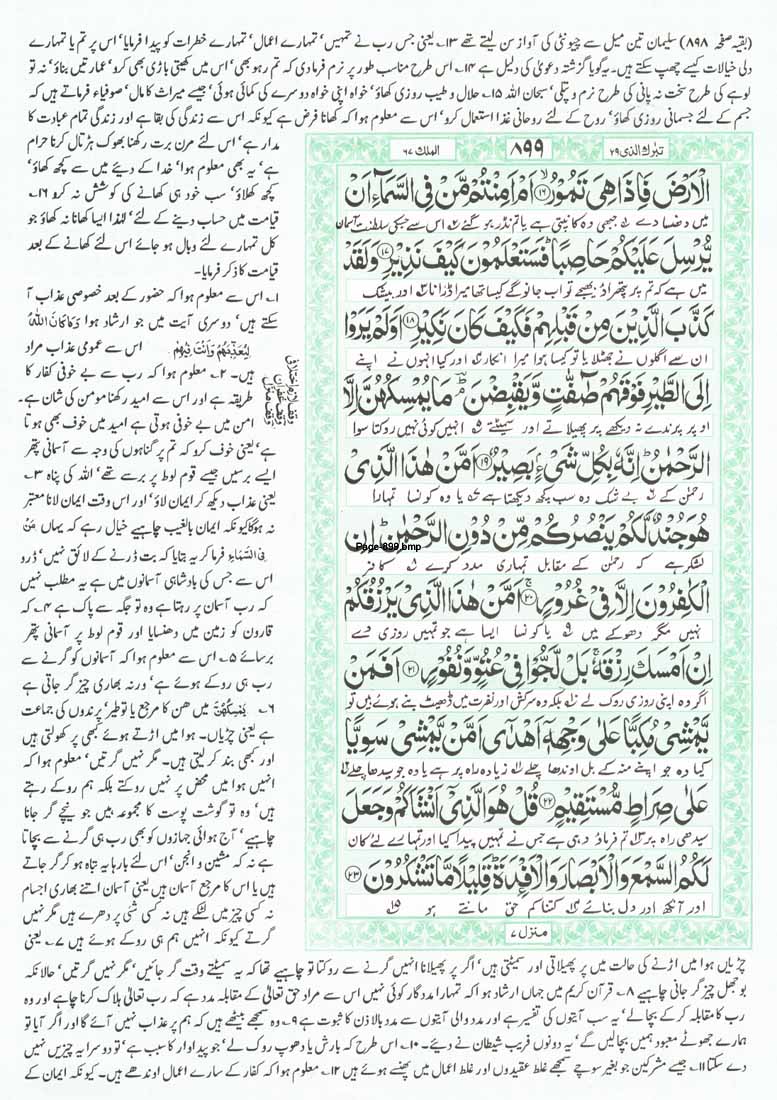 (بقیہ صفحہ ۸۹۸) سلیمان تین میل سے چیونٹی کی آواز سن لیتے تھے ۱۳؎ یعنی جس رب نے تمہیں' تمہارے اعمال' تمہارے خطرات کو پیدا فرمایا' اس پر تم یا تمہارے
دلی خیالات کیسے چھپ سکتے ہیں۔ یہ گویا گزشتہ دعویٰ کی دلیل ہے ۱۴؎ اس طرح مناسب طور پر نرم فرما دی کہ تم رہو بھی' اس میں کھیتی باڑی بھی کرو' عمارتیں بناؤ' نہ تو
لوہے کی طرح سخت نہ پانی کی طرح نرم و پتلی' سبحان اللہ ۱۵؎ حلال و طیب روزی کھاؤ' خواہ اپنی خواہ دوسرے کی کمائی ہوئی' جیسے میراث کا مال' صوفیاء فرماتے ہیں کہ
جسم کے لئے جسمانی روزی کھاؤ' روح کے لئے روحانی غذا استعمال کرو' اس سے معلوم ہوا کہ کھانا فرض ہے کیونکہ اس سے زندگی کی بقا ہے اور زندگی تمام عبادت کا
مدار ہے' اس لئے مرن برت رکھنا بھوک ہڑتال کرنا حرام
ہے' یہ بھی معلوم ہوا' خدا کے دیئے میں سے کچھ کھاؤ'
کچھ کھلاؤ' سب خود ہی کھانے کی کوشش نہ کرو ۱۶؎
قیامت میں حساب دینے کے لئے' لہٰذا ایسا کھانا نہ کھاؤ جو
کل تمہارے لئے وبال ہو جائے اس لئے کھانے کے بعد
قیامت کا ذکر فرمایا۔
۱؎ اس سے معلوم ہوا کہ حضور کے بعد خصوصی عذاب آ
سکتے ہیں' دوسری آیت میں جو ارشاد ہوا وَمَا كَانَ اللّٰهُ
لِيُعَذِّبَهُمْ وَاَنْتَ فِيْهِمْ اس سے عمومی عذاب مراد
ہیں۔ ۲؎ معلوم ہوا کہ رب سے بے خوفی کفار کا
طریقہ ہے اور اس سے امید رکھنا مومن کی شان ہے۔
امن میں بے خوفی ہوتی ہے امید میں خوف بھی ہوتا
ہے' یعنی خوف کرو کہ تم پر گناہوں کی وجہ سے آسمانی پتھر
ایسے برسیں جیسے قوم لوط پر برسے تھے' اللہ کی پناہ ۳؎
یعنی عذاب دیکھ کر ایمان لاؤ' اور اس وقت ایمان لانا معتبر
نہ ہوگا کیونکہ ایمان بالغیب چاہیے خیال رہے کہ یہاں مَنْ
فِی السَّمَاءِ فرما کر یہ بتایا کہ بت ڈرنے کے لائق نہیں' ڈرو
اس سے جس کی بادشاہی آسمانوں میں ہے یہ مطلب نہیں
کہ رب آسمان پر رہتا ہے وہ تو جگہ سے پاک ہے ۴؎ کہ
قارون کو زمین میں دھنسایا اور قوم لوط پر آسمانی پتھر
برسائے ۵؎ اس سے معلوم ہوا کہ آسمانوں کو گرنے سے
رب ہی روکے ہوئے ہے' ورنہ بھاری چیز گر جاتی ہے
۶؎ یُمْسِكُهُنَّ میں ھن کا مرجع یا تو طیر' پرندوں کی جماعت
ہے یعنی چڑیاں۔ ہوا میں اڑتے ہوئے کبھی پر کھولتی ہیں
اور کبھی بند کر لیتی ہیں۔ مگر نہیں گرتیں' معلوم ہوا کہ
انہیں ہوا میں محض پر نہیں روکتے بلکہ ہم روکے رہتے
ہیں' وہ تو گوشت پوست کا مجموعہ ہیں جو نیچے گر جانا
چاہیے' آج ہوائی جہازوں کو بھی رب ہی گرنے سے بچاتا
ہے نہ کہ مشین و انجن' اس لئے بارہا یہ تباہ ہو کر گر جاتے
ہیں یا اس کا مرجع آسمان ہیں یعنی آسمان اتنے بھاری اجسام
نہ کسی چیز میں لٹکے ہیں نہ کسی شئی پر دھرے ہیں مگر نہیں
گرتے کیونکہ انہیں ہم ہی روکے ہوئے ہیں ۷؎ یعنی
تبٰرك الذی ۲۹
۸۹۹
الملك ۶۷
الْاَرْضَ فَاِذَا هِيَ تَمُوْرُ ۱۶ اَمْ اَمِنْتُمْ مَّنْ فِي السَّمَآءِ اَنْ
میں دھنسا دے جبھی وہ کانپتی رہے یا تم نڈر ہو گئے اس سے جسکی سلطنت آسمان
يُّرْسِلَ عَلَيْكُمْ حَاصِبًا فَسَتَعْلَمُوْنَ كَيْفَ نَذِيْرِ ۱۷ وَلَقَدْ
میں ہے کہ تم پر پتھراؤ بھیجے تو اب جانو گے کیسا تھا میرا ڈرانا اور بیشک
كَذَّبَ الَّذِيْنَ مِنْ قَبْلِهِمْ فَكَيْفَ كَانَ نَكِيْرِ ۱۸ اَوَلَمْ يَرَوْا
ان سے اگلوں نے جھٹلایا تو کیسا ہوا میرا انکار اور کیا انہوں نے اپنے
اِلَى الطَّيْرِ فَوْقَهُمْ صٰٓفّٰتٍ وَّيَقْبِضْنَ مَا يُمْسِكُهُنَّ اِلَّا
اوپر پرندے نہ دیکھے پر پھیلاتے اور سمیٹتے انہیں کوئی نہیں روکتا سوا
الرَّحْمٰنُ اِنَّهٗ بِكُلِّ شَيْءٍ بَصِيْرٌ ۱۹ اَمَّنْ هٰذَا الَّذِيْ
رحمٰن کے بے شک وہ سب کچھ دیکھتا ہے یا وہ کونسا تمہارا
هُوَ جُنْدٌ لَّكُمْ يَنْصُرُكُمْ مِّنْ دُوْنِ الرَّحْمٰنِ اِنِ
Page-899.bmp
لشکر ہے کہ رحمٰن کے مقابل تمہاری مدد کرے کافر
الْكٰفِرُوْنَ اِلَّا فِيْ غُرُوْرٍ ۲۰ اَمَّنْ هٰذَا الَّذِيْ يَرْزُقُكُمْ
نہیں مگر دھوکے میں یا کونسا ایسا ہے جو تمہیں روزی دے
اِنْ اَمْسَكَ رِزْقَهٗ بَلْ لَّجُّوْا فِيْ عُتُوٍّ وَّنُفُوْرٍ ۲۱ اَفَمَنْ
اگر وہ اپنی روزی روک لے بلکہ وہ سرکش اور نفرت میں ڈھیٹ بنے ہوئے ہیں تو
يَّمْشِيْ مُكِبًّا عَلٰى وَجْهِهٖٓ اَهْدٰٓى اَمَّنْ يَّمْشِيْ سَوِيًّا
کیا وہ جو اپنے منہ کے بل اوندھا چلے زیادہ راہ پر ہے یا وہ جو سیدھا چلے
عَلٰى صِرَاطٍ مُّسْتَقِيْمٍ ۲۲ قُلْ هُوَ الَّذِيْٓ اَنْشَاَكُمْ وَجَعَلَ
سیدھی راہ پر تم فرماؤ وہی ہے جس نے تمہیں پیدا کیا اور تمہارے لئے کان
لَكُمُ السَّمْعَ وَالْاَبْصَارَ وَالْاَفْـِٕدَةَ قَلِيْلًا مَّا تَشْكُرُوْنَ ۲۳
اور آنکھ اور دل بنائے کتنا کم حق مانتے ہو
منزل ۷
چڑیاں ہوا میں اڑنے کی حالت میں پر پھیلاتی اور سمیٹتی ہیں' اگر پر پھیلانا انہیں گرنے سے روکتا تو چاہیے تھا کہ یہ سمیٹتے وقت گر جائیں' مگر نہیں گرتیں' حالانکہ
بوجھل چیز گر جانی چاہیے ۸؎ قرآن کریم میں جہاں ارشاد ہوا کہ تمہارا مددگار کوئی نہیں اس سے مراد حق تعالیٰ کے مقابلہ مدد ہے کہ رب تعالیٰ ہلاک کرنا چاہے اور وہ
رب کا مقابلہ کر کے بچا لے' یہ سب آیتوں کی تفسیر ہے اور مدد والی آیتوں سے مدد بالاذن کا ثبوت ہے ۹؎ وہ سمجھے بیٹھے ہیں کہ ہم پر عذاب نہیں آئے گا اور اگر آیا تو
ہمارے جھوٹے معبود ہمیں بچالیں گے' یہ دونوں فریب شیطان نے دیئے۔ ۱۰؎ اس طرح کہ بارش یا دھوپ روک لے' جو پیداوار کا سبب ہے' تو دوسرا یہ چیزیں نہیں
دے سکتا ۱۱؎ جیسے مشرکین جو بغیر سوچے سمجھے غلط عقیدوں اور غلط اعمال میں پھنسے ہوئے ہیں ۱۲؎ معلوم ہوا کہ کفار کے سارے اعمال اوندھے ہیں۔ کیونکہ ایمان کے